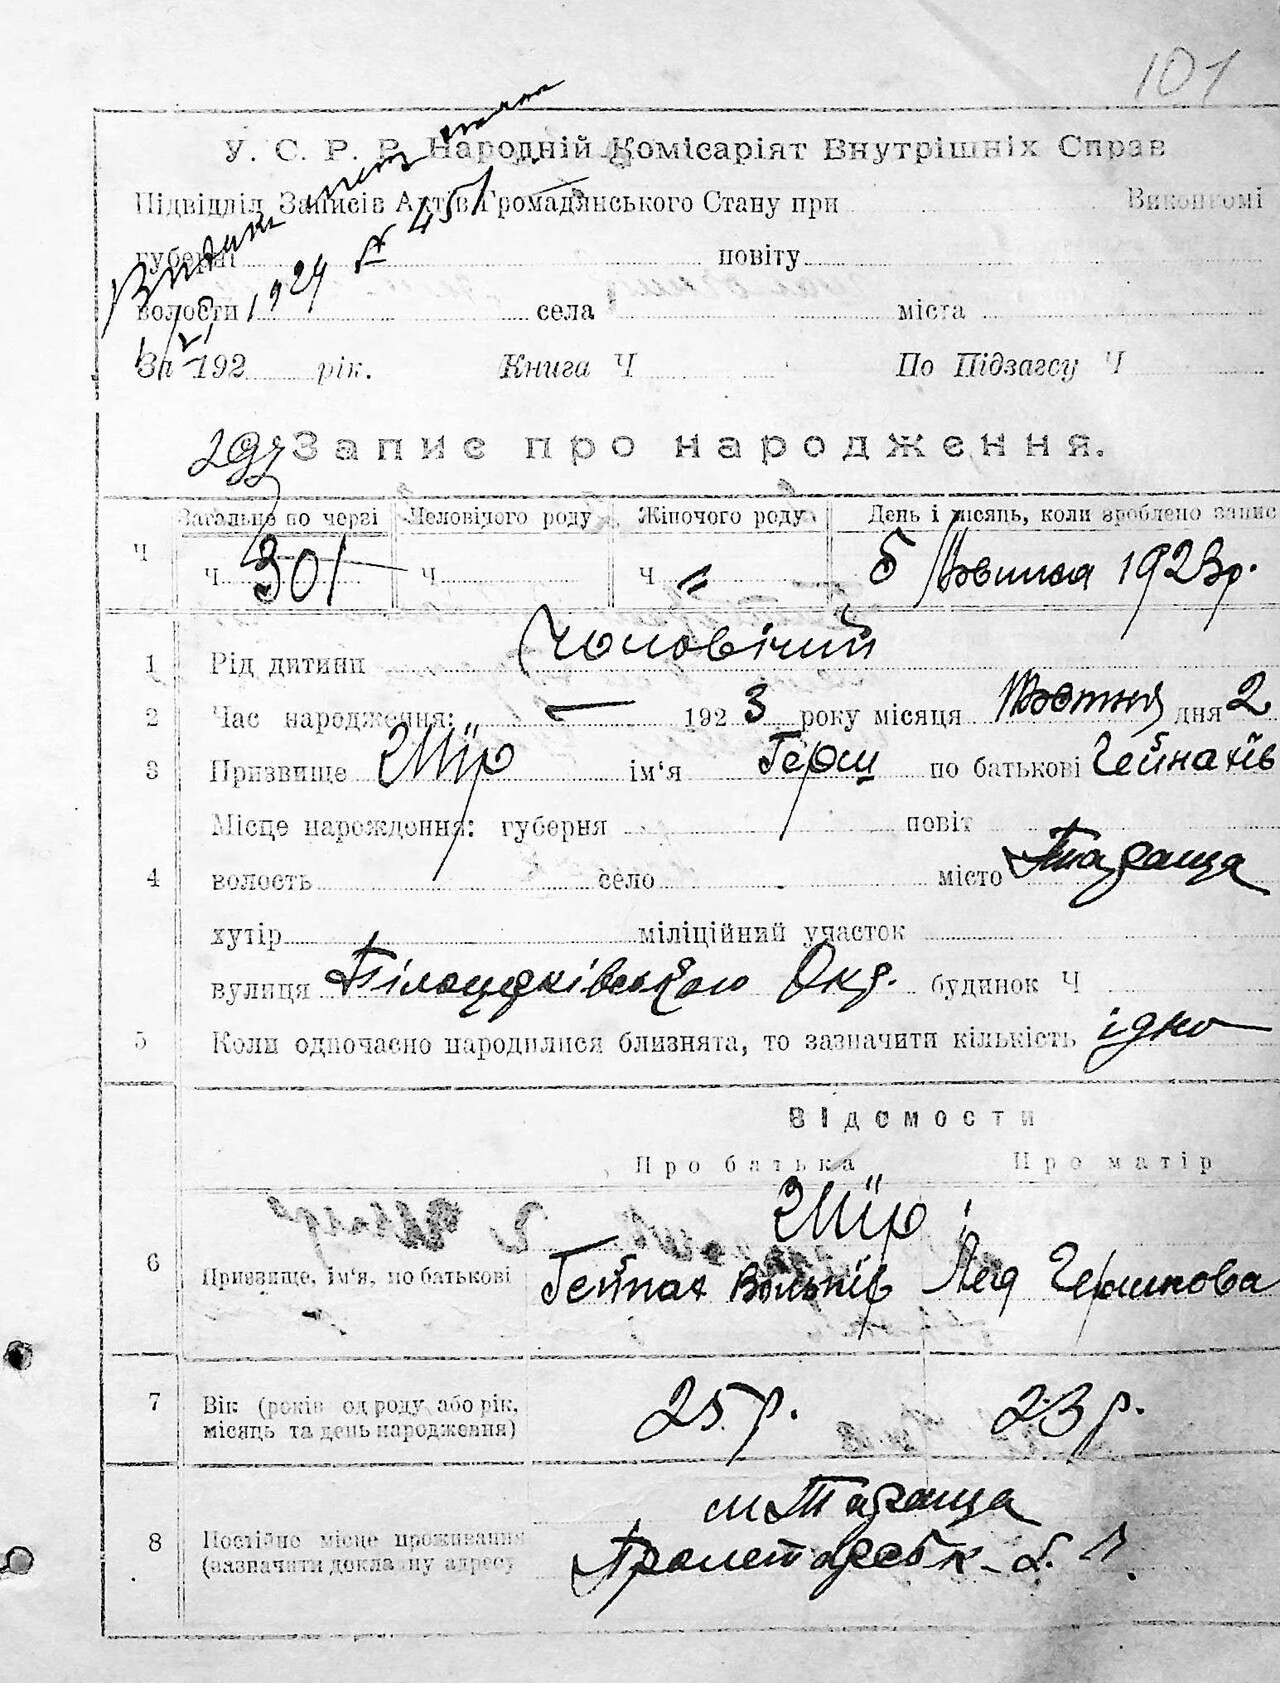 101
У. С. Р. Р. Народній Комісаріят Внутрішніх Справ
Підвідділ Записів Актів Громадянського Стану при Виконкомі
губерні повіту
1924 № 451
волости села міста
За 192 рік. Книга Ч По Підзагсу Ч
297 Запис про народження.
Загальне по черзі Человічого роду Жіночого роду День і місяць, коли зроблено запис
Ч Ч 301 Ч Ч " 5 Жовтня 1923р.
1 Рід дитини Чоловічий
2 Час народження: — 1923 року місяця Жовтня дня 2
3 Призвище Шїр ім'я Герш по батькові Гейнахів
Місце народження: губерня повіт
4 волость село місто Тараща
хутір міліційний участок
вулиця Білоцерківською Окр. будинок Ч
5 Коли одночасно народилися близнята, то зазначити кількість їдно
Відомости
Про батька Про матір
Шїр
6 Призвище, ім'я, по батькові Гейнах Вольків Лея Гершкова
7 Вік (років од роду або рік, 25 р. 23 р.
місяць та день народження)
м Тараща
8 Постійне місце проживання Пролетарськ
(зазначити докладну адресу